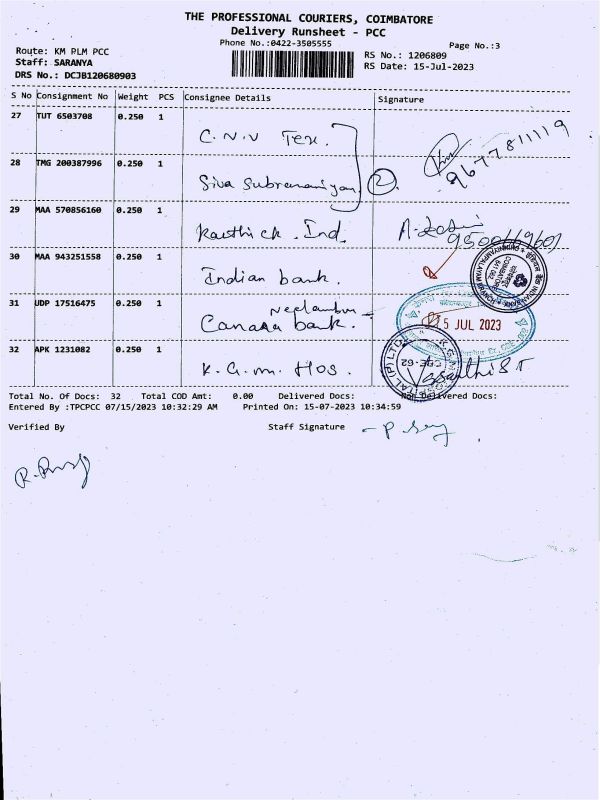 THE PROFESSIONAL COURIERS, COIMBATORE
Delivery Runsheet - PCC
Phone No.:0422-3505555
Page No.:3
Route: KM PLM PCC
Staff: SARANYA
DRS No.: DCJB120680903
RS No.: 1206809
RS Date: 15-Jul-2023
S No Consignment No Weight PCS Consignee Details Signature
27 TUT 6503708 0.250 1 C.N.V Tex. 9677811119
28 TMG 200387996 0.250 1 Siva Subramaniyan 2
29 MAA 570856160 0.250 1 Karthick. Ind.
30 MAA 943251558 0.250 1 Indian bank.
31 UDP 17516475 0.250 1 Neelambur
Canara bank.
15 JUL 2023
32 APK 1231082 0.250 1 K.G.M. Hos.
Total No. Of Docs: 32 Total COD Amt: 0.00 Delivered Docs: Non Delivered Docs:
Entered By :TPCPCC 07/15/2023 10:32:29 AM Printed On: 15-07-2023 10:34:59
Verified By Staff Signature